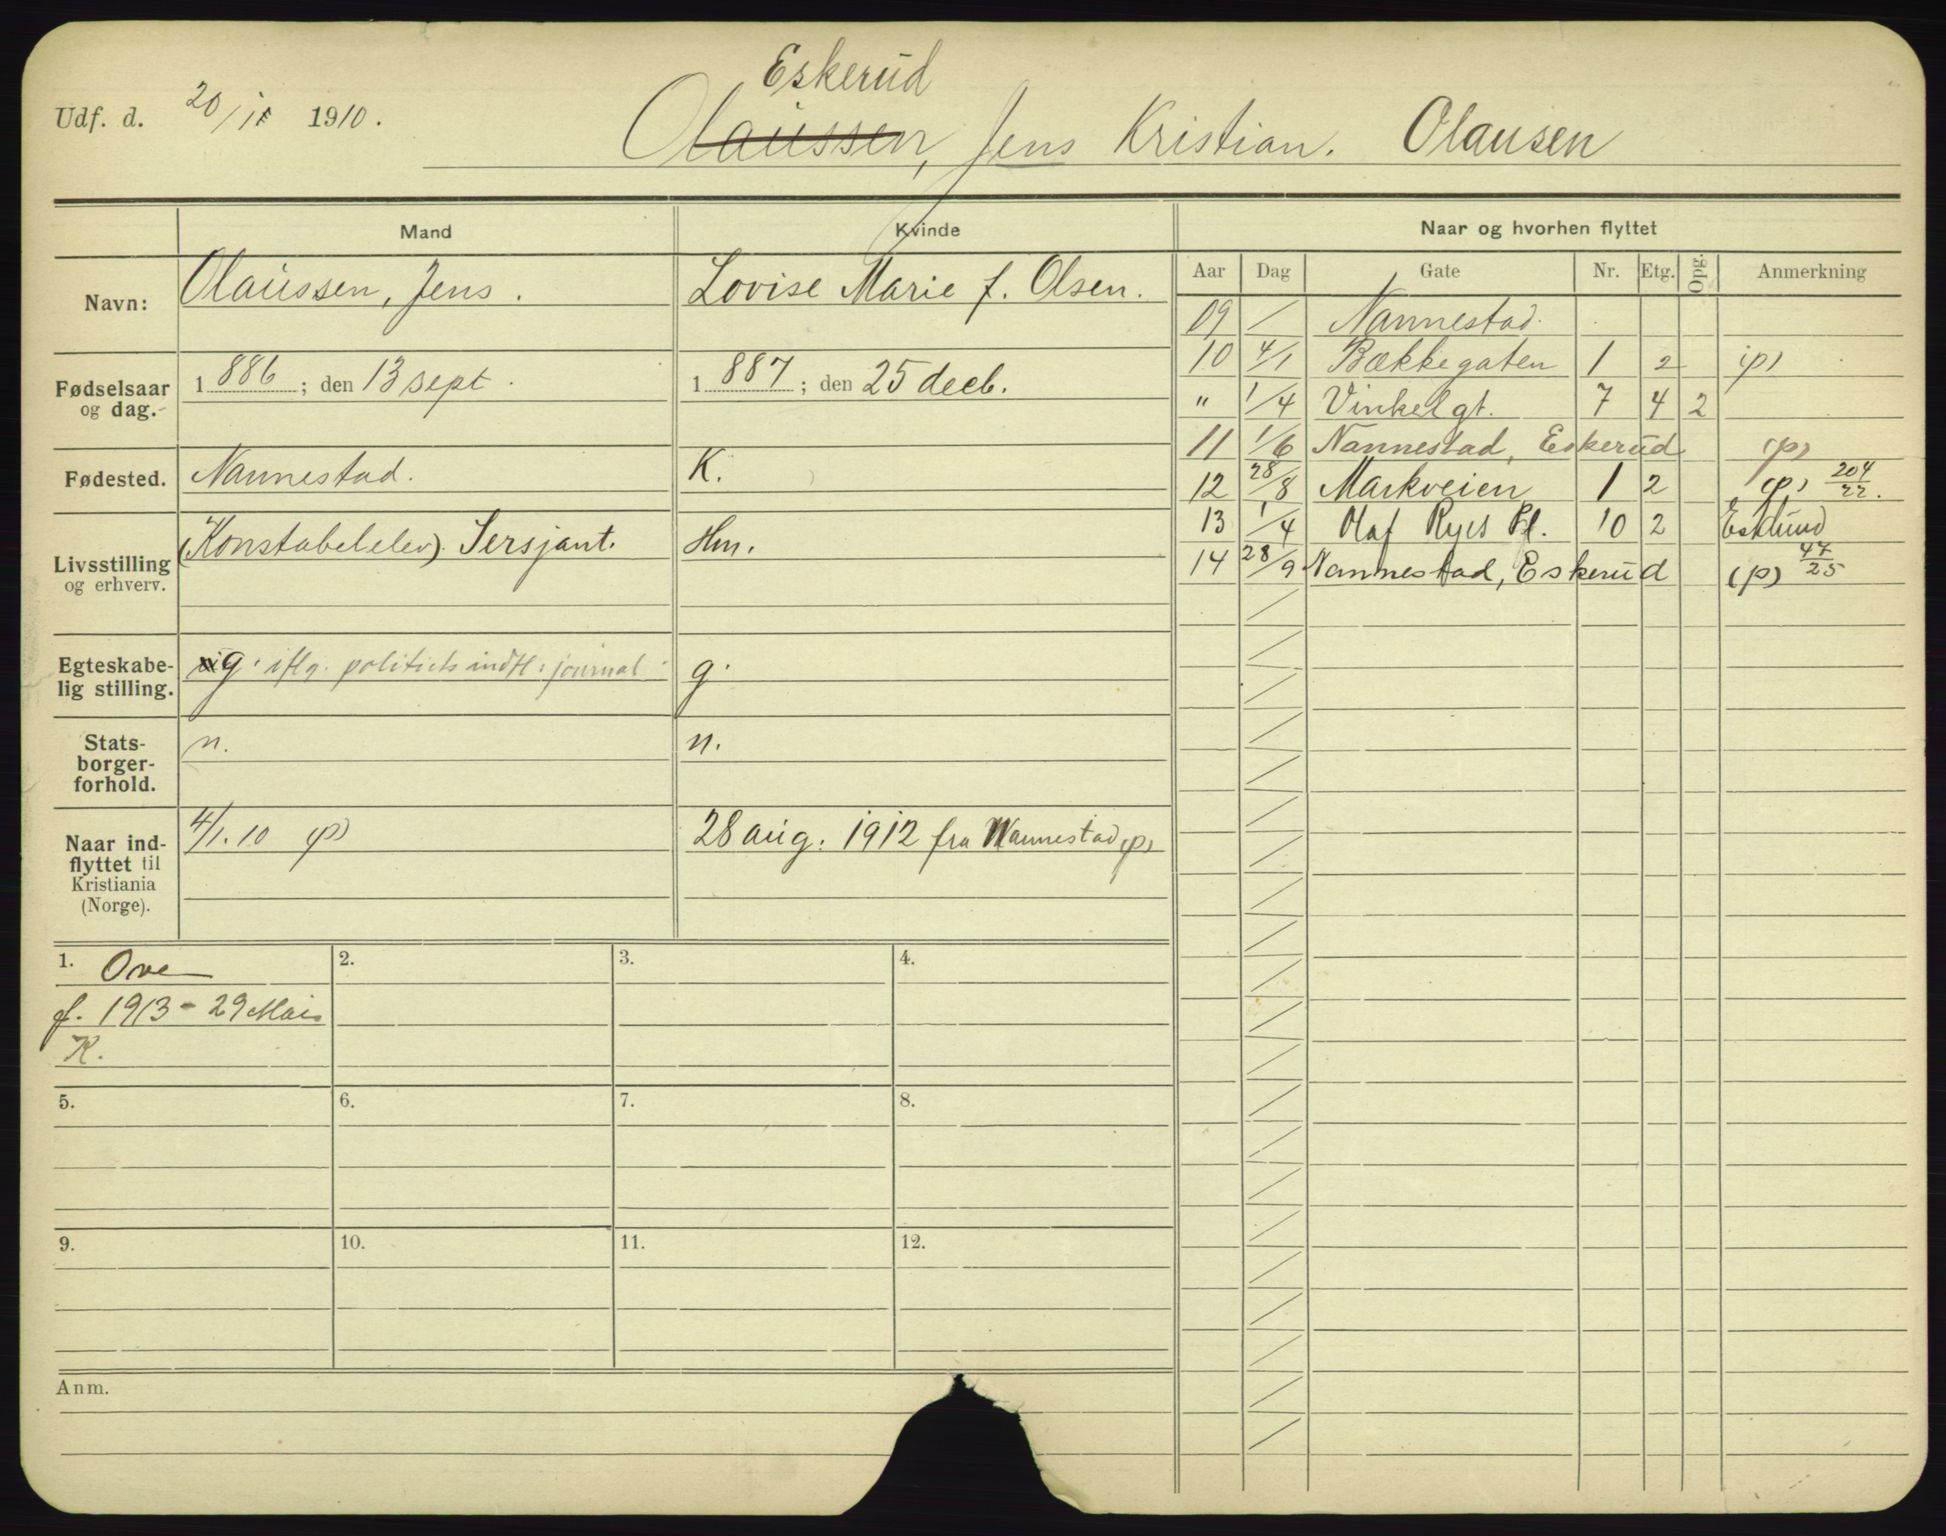 Eskerud
Udf. d. 20/11 1910. Olaussen, Jens Kristian. Olausen
Mand
Kvinde
Naar og hvorhen flyttet
Aar Dag Gate Nr. Etg. Opg. Anmerkning
Navn: Olaussen, Jens. Lovise Marie f. Olsen.
Fødselsaar og dag. 1886; den 13 sept. 1887; den 25 decb.
Fødested. Nannestad. K.
Livsstilling og erhverv. (Konstabelelev). Sersjant. Hm.
Egteskabe-
lig stilling. g. iflg. politiets indfl. journal. g.
Stats-
borger-
forhold. n. n.
Naar ind-
flyttet til
Kristiania
(Norge). 4/1.10 (p) 28 aug. 1912 fra Nannestad (p)
09 / Nannestad.
10 4/1 Bækkegaten 1 2 (p)
" 1/4 Vinkelgt. 7 4 2
11 1/6 Nannestad, Eskerud (p)
12 28/8 Markveien 1 2 (p) 204/22.
13 1/4 Olaf Ryes Pl. 10 2
14 28/9 Nannestad, Eskerud (p) 47/25
1. Ove
f. 1913 - 29 Mai
K.
2.
3.
4.
5.
6.
7.
8.
9.
10.
11.
12.
Anm.